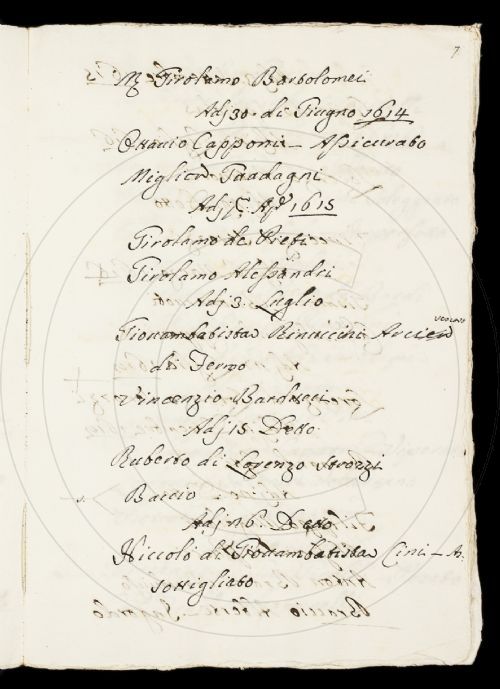 7
M Girolamo Bartolomei
Adj 30. di Giugno 1614
Ottauio Capponi – Assicurato
Migliore Guadagni
Adj Apr. 1615
Girolamo de
Girolamo Alessandri
Adj 3. Luglio
Giouambatista Rinuccini Arciue
uescouo
di Fermo
Vincenzio Barducci
Adj 15. Detto
Ruberto di Lorenzo Strozzi
Baccio
Adj 16. Detto
Niccolò di Giouambatista Cini – A.
Sottigliato